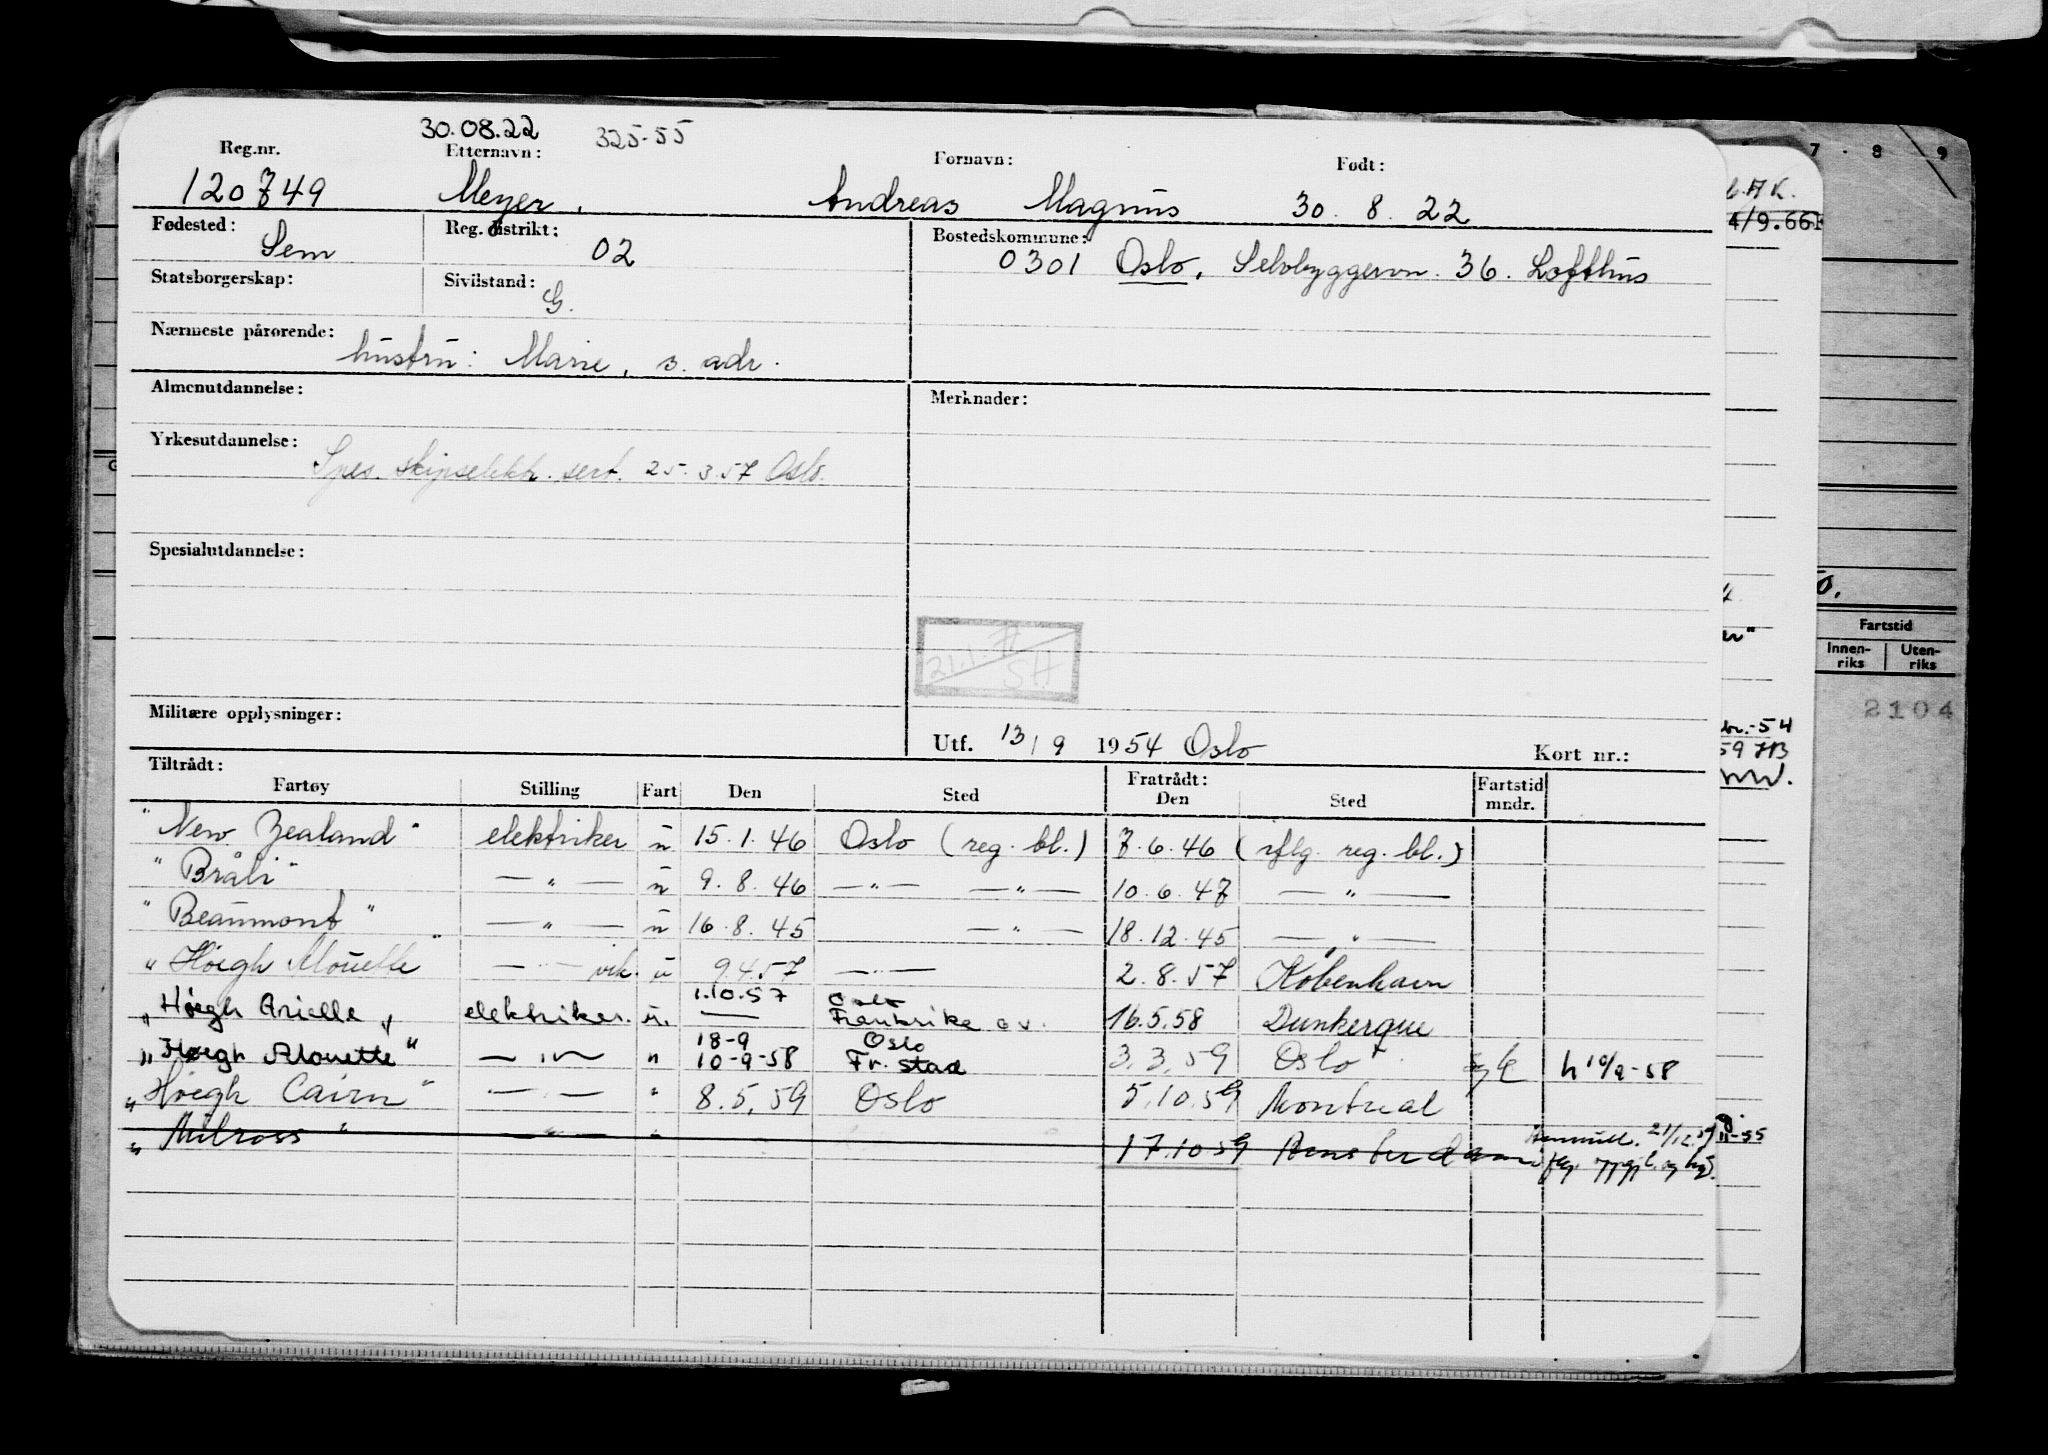 30.08.22 325-55
Reg.nr. Etternavn: Fornavn: Født:
120749 Meyer, Andreas Magnus 30. 8. 22
Fødested: Sem Reg. distrikt: 02 Bostedskommune: 0301 Oslo, Selvbyggervn. 36. Lofthus
Statsborgerskap: Sivilstand: G.
Nærmeste pårørende: hustru: Marie, s. adr.
Almenutdannelse: Merknader:
Yrkesutdannelse: Spes. skipselektr. sert. 25.3.57 Oslo.
Spesialutdannelse:
21.1.71
SH
Militære opplysninger:
Utf. 13/9 1954 Oslo Kort nr.:
Tiltrådt: Fratrådt: Fartstid
Fartøy Stilling Fart Den Sted Den Sted mndr.
"New Zealand" elektriker u 15.1.46 Oslo (reg. bl.) 7.6.46 (iflg. reg. bl.)
"Bråli" — " — u 9.8.46 — " — — " — 10.6.47 — " —
"Beaumont" — " — u 16.8.45 — " — 18.12.45 — " —
"Höegh Alouette" — " — vik. u 9.4.57 — " — 2.8.57 København
1.10.57 Oslo
"Höegh Arielle" elektriker. u. — Frankrike 16.5.58 Dunkerque
18-9 Oslo
"Höegh Alouette" — " — " 10-9-58 Fr. stad 3.3.59 Oslo
"Höegh Cairn" — " — " 8.5.59 Oslo 5.10.59 Montreal
"Milross" — " — " 17.10.59 Amsterdam
21/12.59
7 · 8 9
4/9.66
50.
Fartstid
Innen-riks Uten-riks
2104
-54
59
11-55